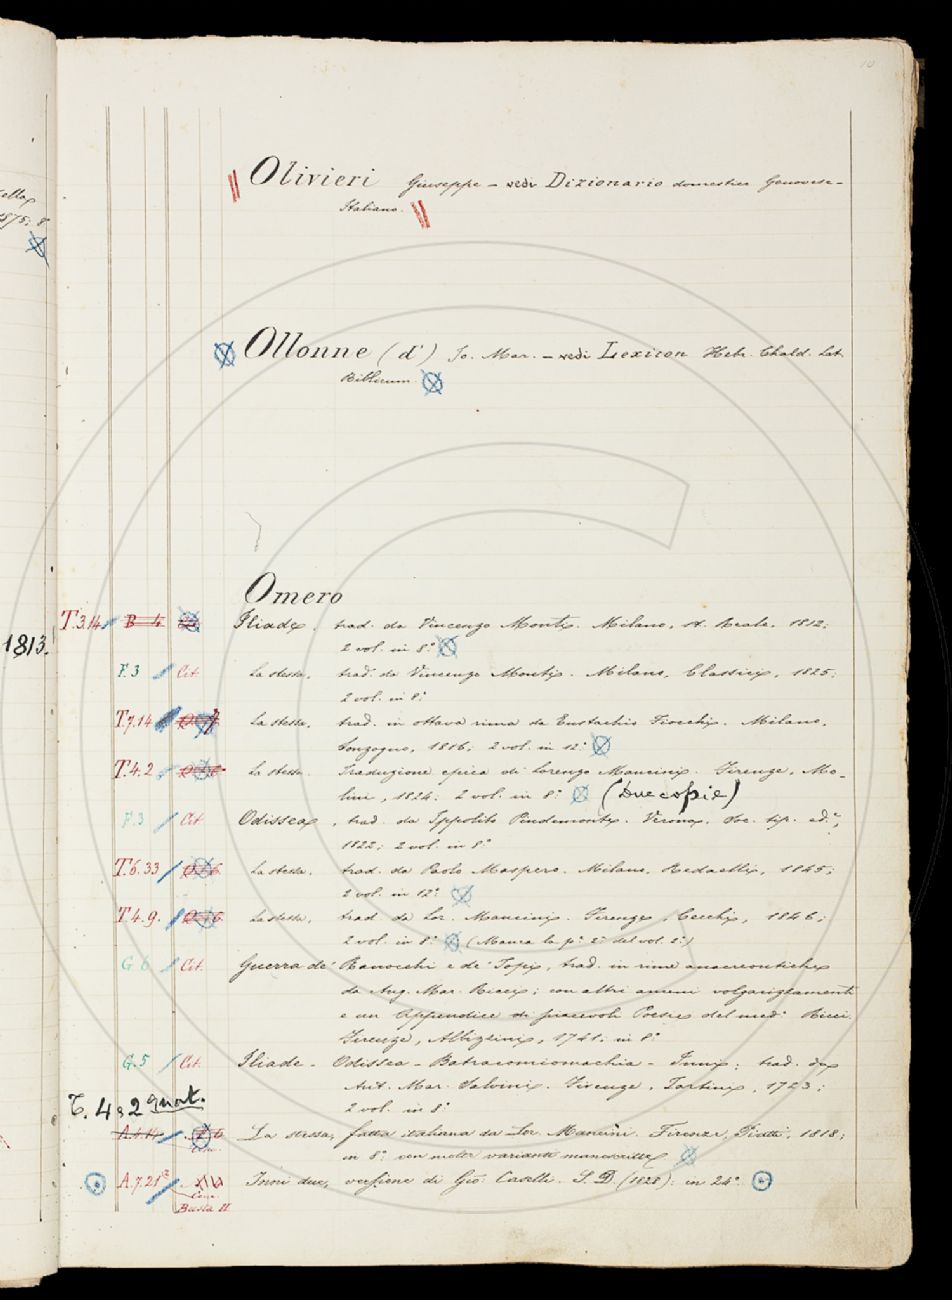 10
1875; 8
Olivieri Giuseppe – vedi Dizionario domestico Genovese-
Italiano.
Ollonne (d') Jo. Mar. – vedi Lexicon Hebr. Chald. Lat.
Biblicum
Omero
1813.
T.3.14 B 4 Iliade, trad. da Vincenzo Monti. Milano, St. Reale, 1812;
2 vol. in 8°
F.3 Cit. La stessa, trad. da Vincenzo Monti. Milano, Classici, 1825;
2 vol. in 8°
T.7.14 La stessa, trad. in ottava rima da Eustachio Fiocchi. Milano,
Sonzogno, 1816; 2 vol. in 12°
T.4.2 La stessa. Traduzione epica di Lorenzo Mancini. Firenze, Mo-
lini, 1824; 2 vol. in 8° (Due copie)
F.3 Cit. Odissea, trad. da Ippolito Pindemonte. Verona, Soc. tip. ed.,
1822; 2 vol. in 8°
T.6.33 La stessa, trad. da Paolo Maspero. Milano, Redaelli, 1845;
2 vol. in 12°
T.4.9. La stessa, trad. da Lor. Mancini. Firenze, Cecchi, 1846;
2 vol. in 8° (Manca la p.e 2.a del vol. 2°)
G 6 Cit. Guerra de' Ranocchi e de' Topi, trad. in rime anacreontiche
da Ang. Mar. Ricci; con altri ameni volgarizzamenti
e un Appendice di piacevoli Poesie del med.° Ricci.
Firenze, Albizzini, 1741; in 8°
G.5 Cit. Iliade - Odissea - Batracomiomachia - Inni; trad. da
Ant. Mar. Salvini. Firenze, Tartini, 1723;
2 vol. in 8°
T. 4.2 quat.
La stessa, fatta italiana da Lor. Mancini. Firenze, Piatti, 1818;
in 8° con molte varianti manoscritte
A.7.21 Inni due, versione di Gio. Caselli. S. D. (1828); in 24°
Cem.
Busta II.